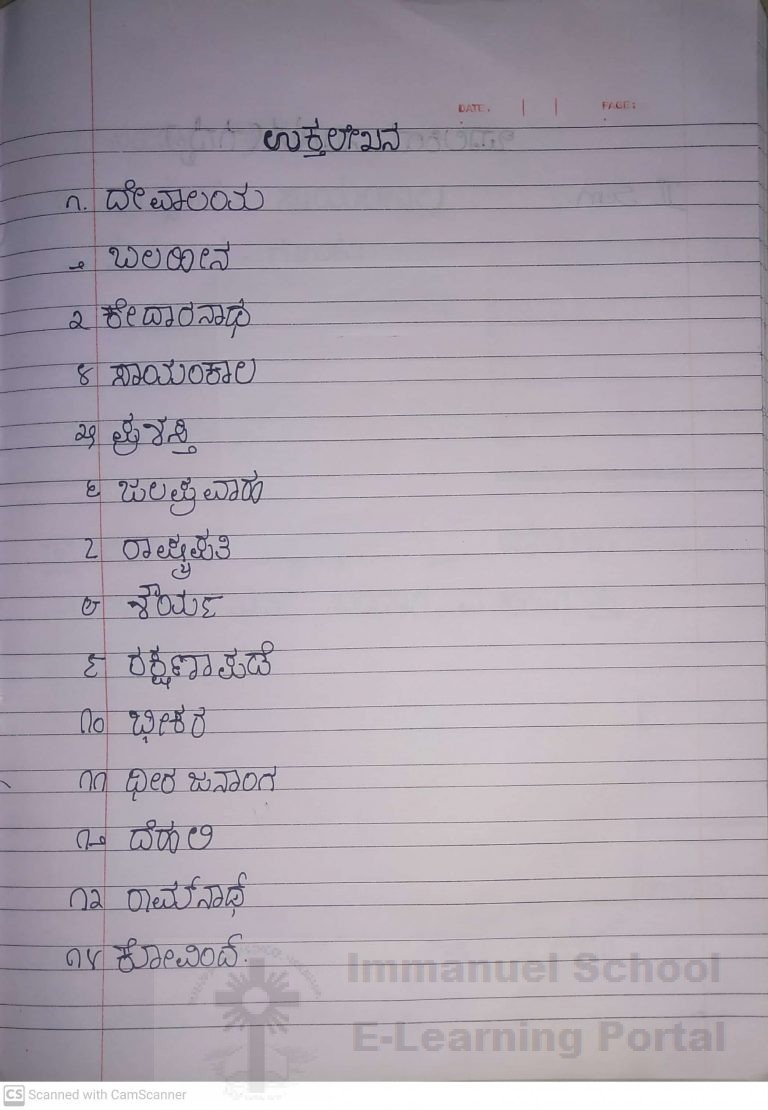 DATE. | | PAGE:
ಉಕ್ತಲೇಖನ
೧. ದೇವಾಲಯ
೨ ಬಲಹೀನ
೩ ಕೇದಾರನಾಥ
೪ ಸಾಯಂಕಾಲ
೫ ಪ್ರಶಸ್ತಿ
೬ ಜಲಪ್ರವಾಹ
೭ ರಾಷ್ಟ್ರಪತಿ
೮ ಶೌರ್ಯ
೯ ರಕ್ಷಣಾಪಡೆ
೧೦ ಭೀಕರ
೧೧ ಧೀರ ಜನಾಂಗ
೧೨ ದೆಹಲಿ
೧೩ ರಾಮ್‌ನಾಥ್
೧೪ ಕೋವಿಂದ್.
Immanuel School
E-Learning Portal
CS Scanned with CamScanner